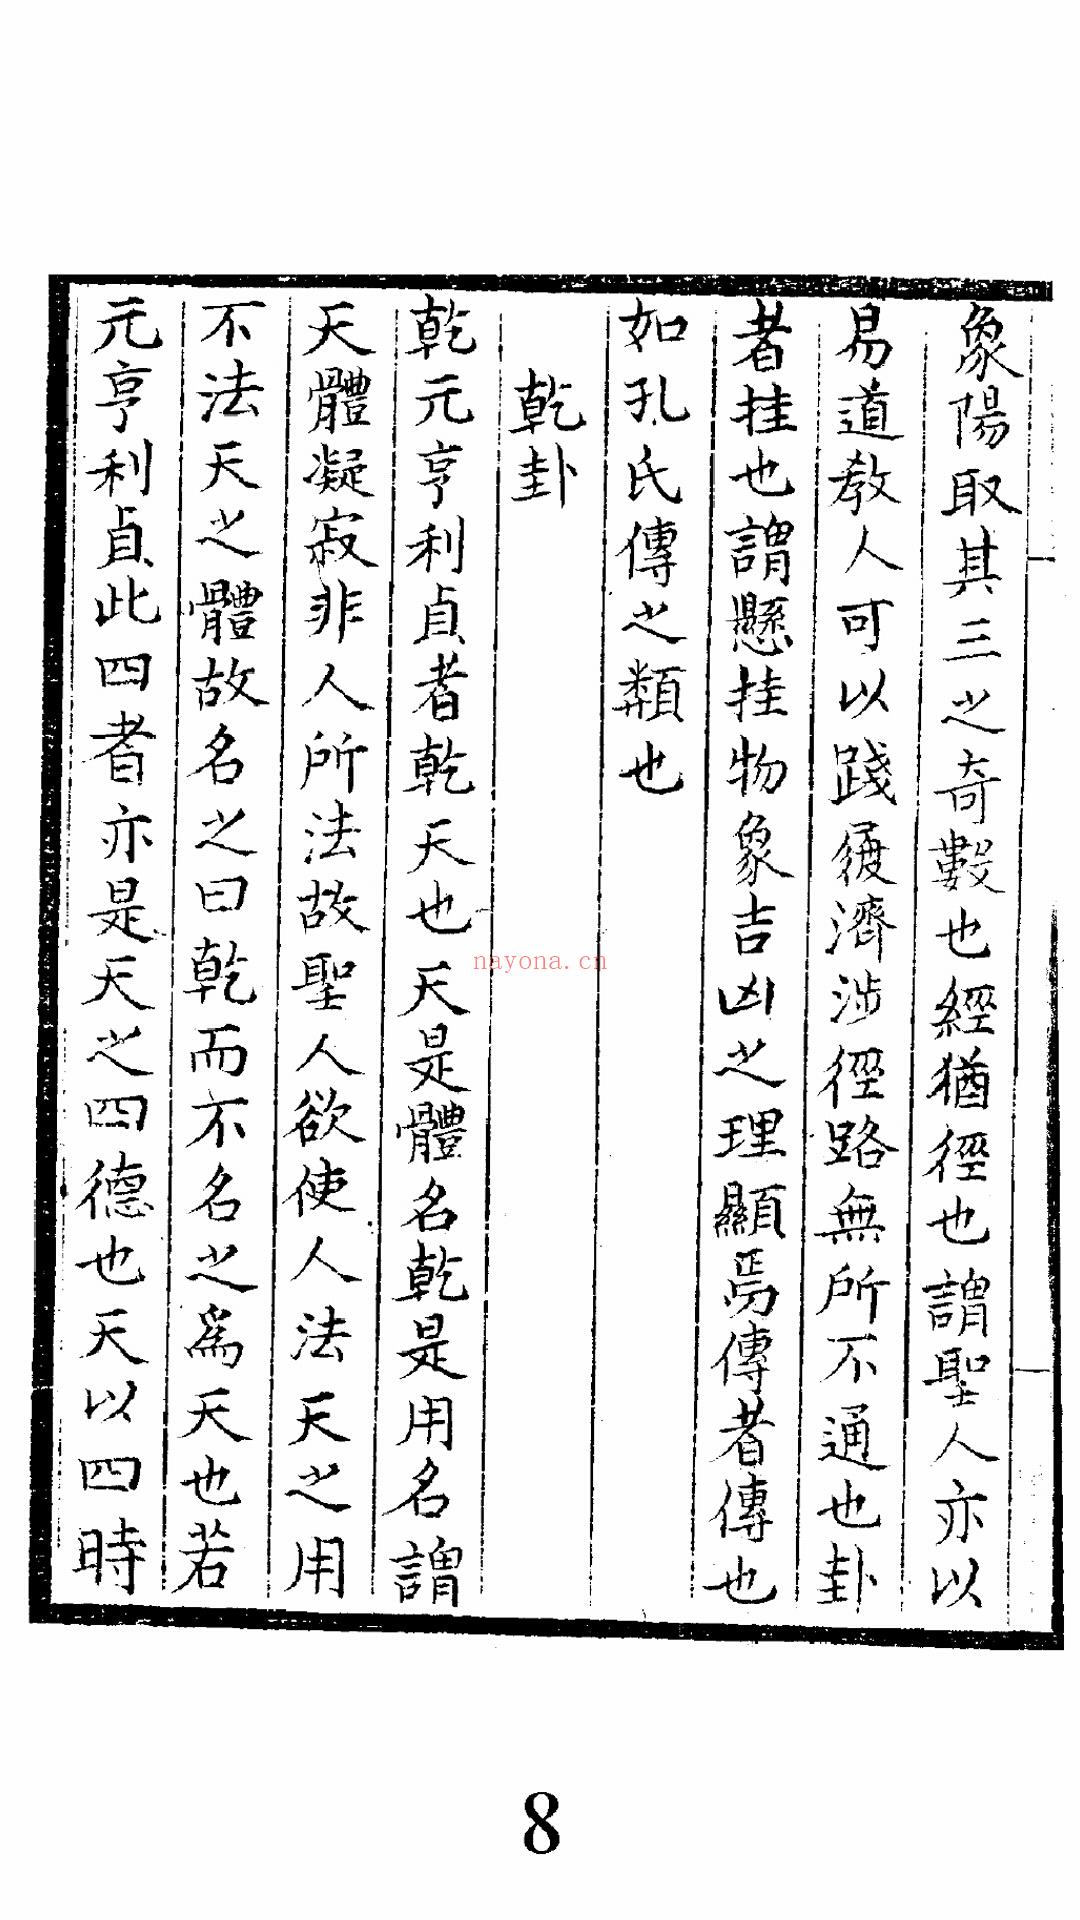 象陽取其三之奇數也經猶徑也謂聖人亦以
易道教人可以踐履濟涉徑路無所不通也卦
者挂也謂懸挂物象吉凶之理顯焉傳者傳也
如孔氏傳之類也
乾卦
乾元亨利貞者乾天也天是體名乾是用名謂
天體凝寂非人所法故聖人欲使人法天之用
不法天之體故名之曰乾而不名之爲天也若
元亨利貞此四者亦是天之四德也天以四時
nayona.cn
8